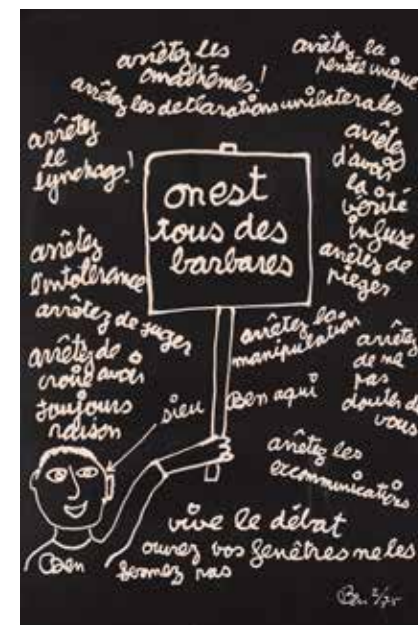 arrêtez les
anathèmes !
arrêtez la
pensée unique
arrêtez les declarations unilaterales
arrêtez
le
lynchage !
arrêtez
d'avoir
la
vérité
infuse
on est
tous des
barbares
arrêtez
l'intolérance
arrêtez de
pieger
arrêtez de juger
arrêtez la
manipulation
arrêtez
de ne
pas
douter de
vous
arrêtez de
croire avoir
toujours
raison
sieu
Ben aqui
arrêtez les
excommunications
vive le débat
ouvrez vos fenêtres ne les
fermez pas
Ben
Ben